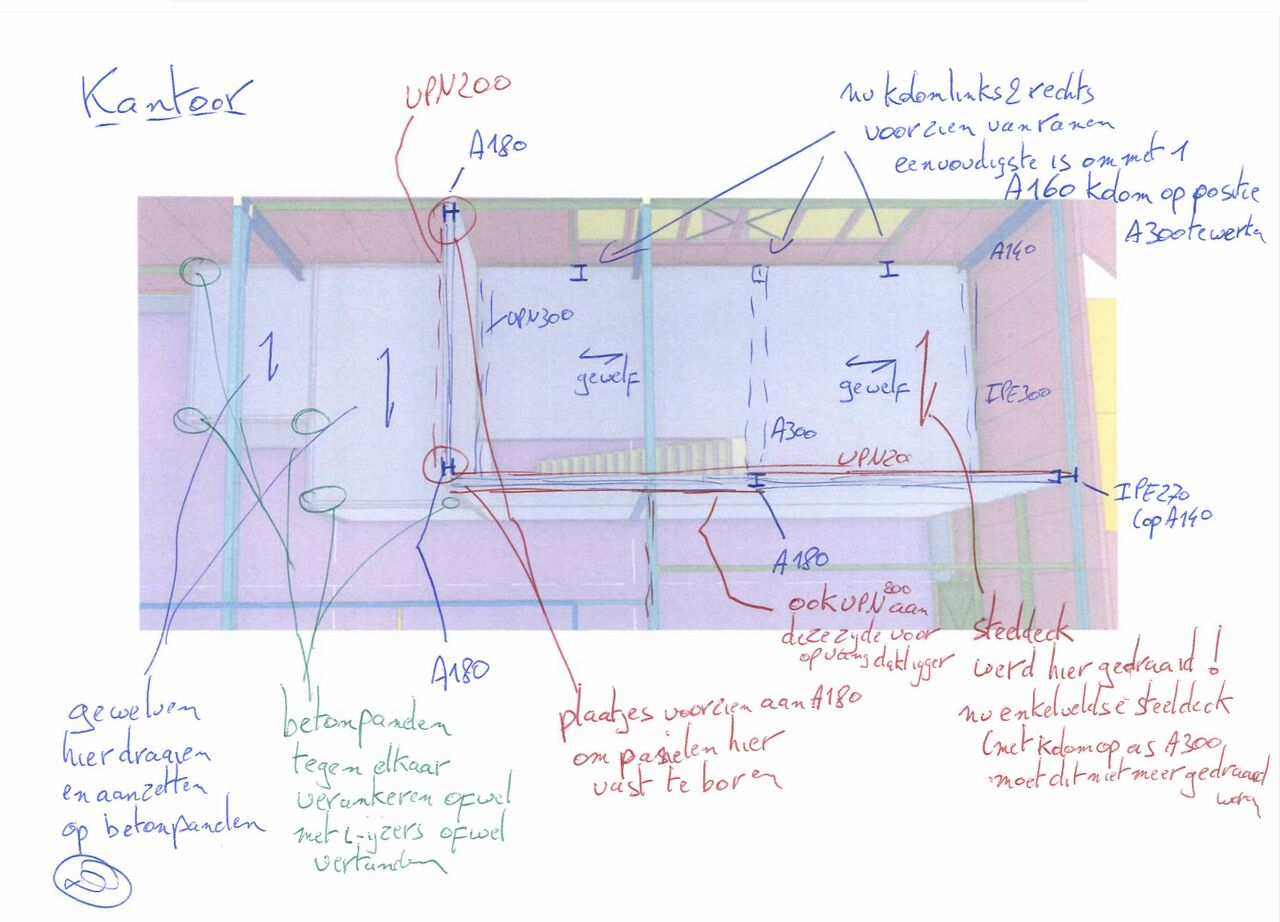 Kantoor
UPN200
A180
nu kdom links & rechts
voorzien van ramen
eenvoudigste is om met 1
A160 kdom op positie
A300 te werken
A140
UPN300
gewelf
gewelf
IPE300
A300
UPN20
IPE270
(op A140
A180
ook UPN 200 aan
deze zyde voor
opvang dakligger
steeldeck
werd hier gedraaid!
nu enkelveldse steeldeck
(met kdom op as A300
moet dit niet meer gedraaid
A180
plaatjes voorzien aan A180
om panelen hier
vast te boren
gewelven
hier draaien
en aanzetten
op betonpanden
betonpanden
tegen elkaar
verankeren ofwel
met L-ijzers ofwel
vertanden